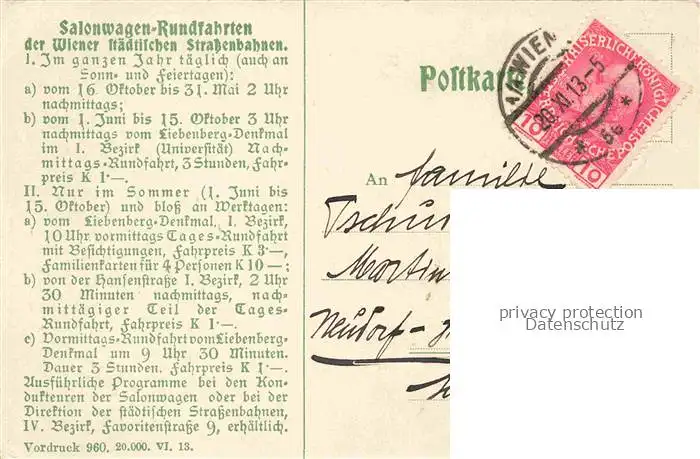 Salonwagen-Rundfahrten
der Wiener städtischen Straßenbahnen.
I. Im ganzen Jahr täglich (auch an
Sonn- und Feiertagen):
a) vom 16. Oktober bis 31. Mai 2 Uhr
nachmittags;
b) vom 1. Juni bis 15. Oktober 3 Uhr
nachmittags vom Liebenberg-Denkmal
im I. Bezirk (Universität) Nach-
mittags-Rundfahrt, 3 Stunden, Fahr-
preis K 1·—.
II. Nur im Sommer (1. Juni bis
15. Oktober) und bloß an Werktagen:
a) vom Liebenberg-Denkmal, I. Bezirk,
10 Uhr vormittags Tages-Rundfahrt
mit Besichtigungen, Fahrpreis K 3·—,
Familienkarten für 4 Personen K 10·—;
b) von der Hansenstraße I. Bezirk, 2 Uhr
30 Minuten nachmittags, nach-
mittägiger Teil der Tages-
Rundfahrt, Fahrpreis K 1·—.
c) Vormittags-Rundfahrt vom Liebenberg-
Denkmal um 9 Uhr 30 Minuten.
Dauer 3 Stunden. Fahrpreis K 1·—.
Ausführliche Programme bei den Kon-
dukteuren der Salonwagen oder bei der
Direktion der städtischen Straßenbahnen,
IV. Bezirk, Favoritenstraße 9, erhältlich.
Vordruck 960. 20.000. VI. 13.
Postkarte
WIEN
20 XI 13-5
* 8c *
KAISERLICHE KÖNIGLICHE
10 10
An Familie
Neudorf-
privacy protection
Datenschutz